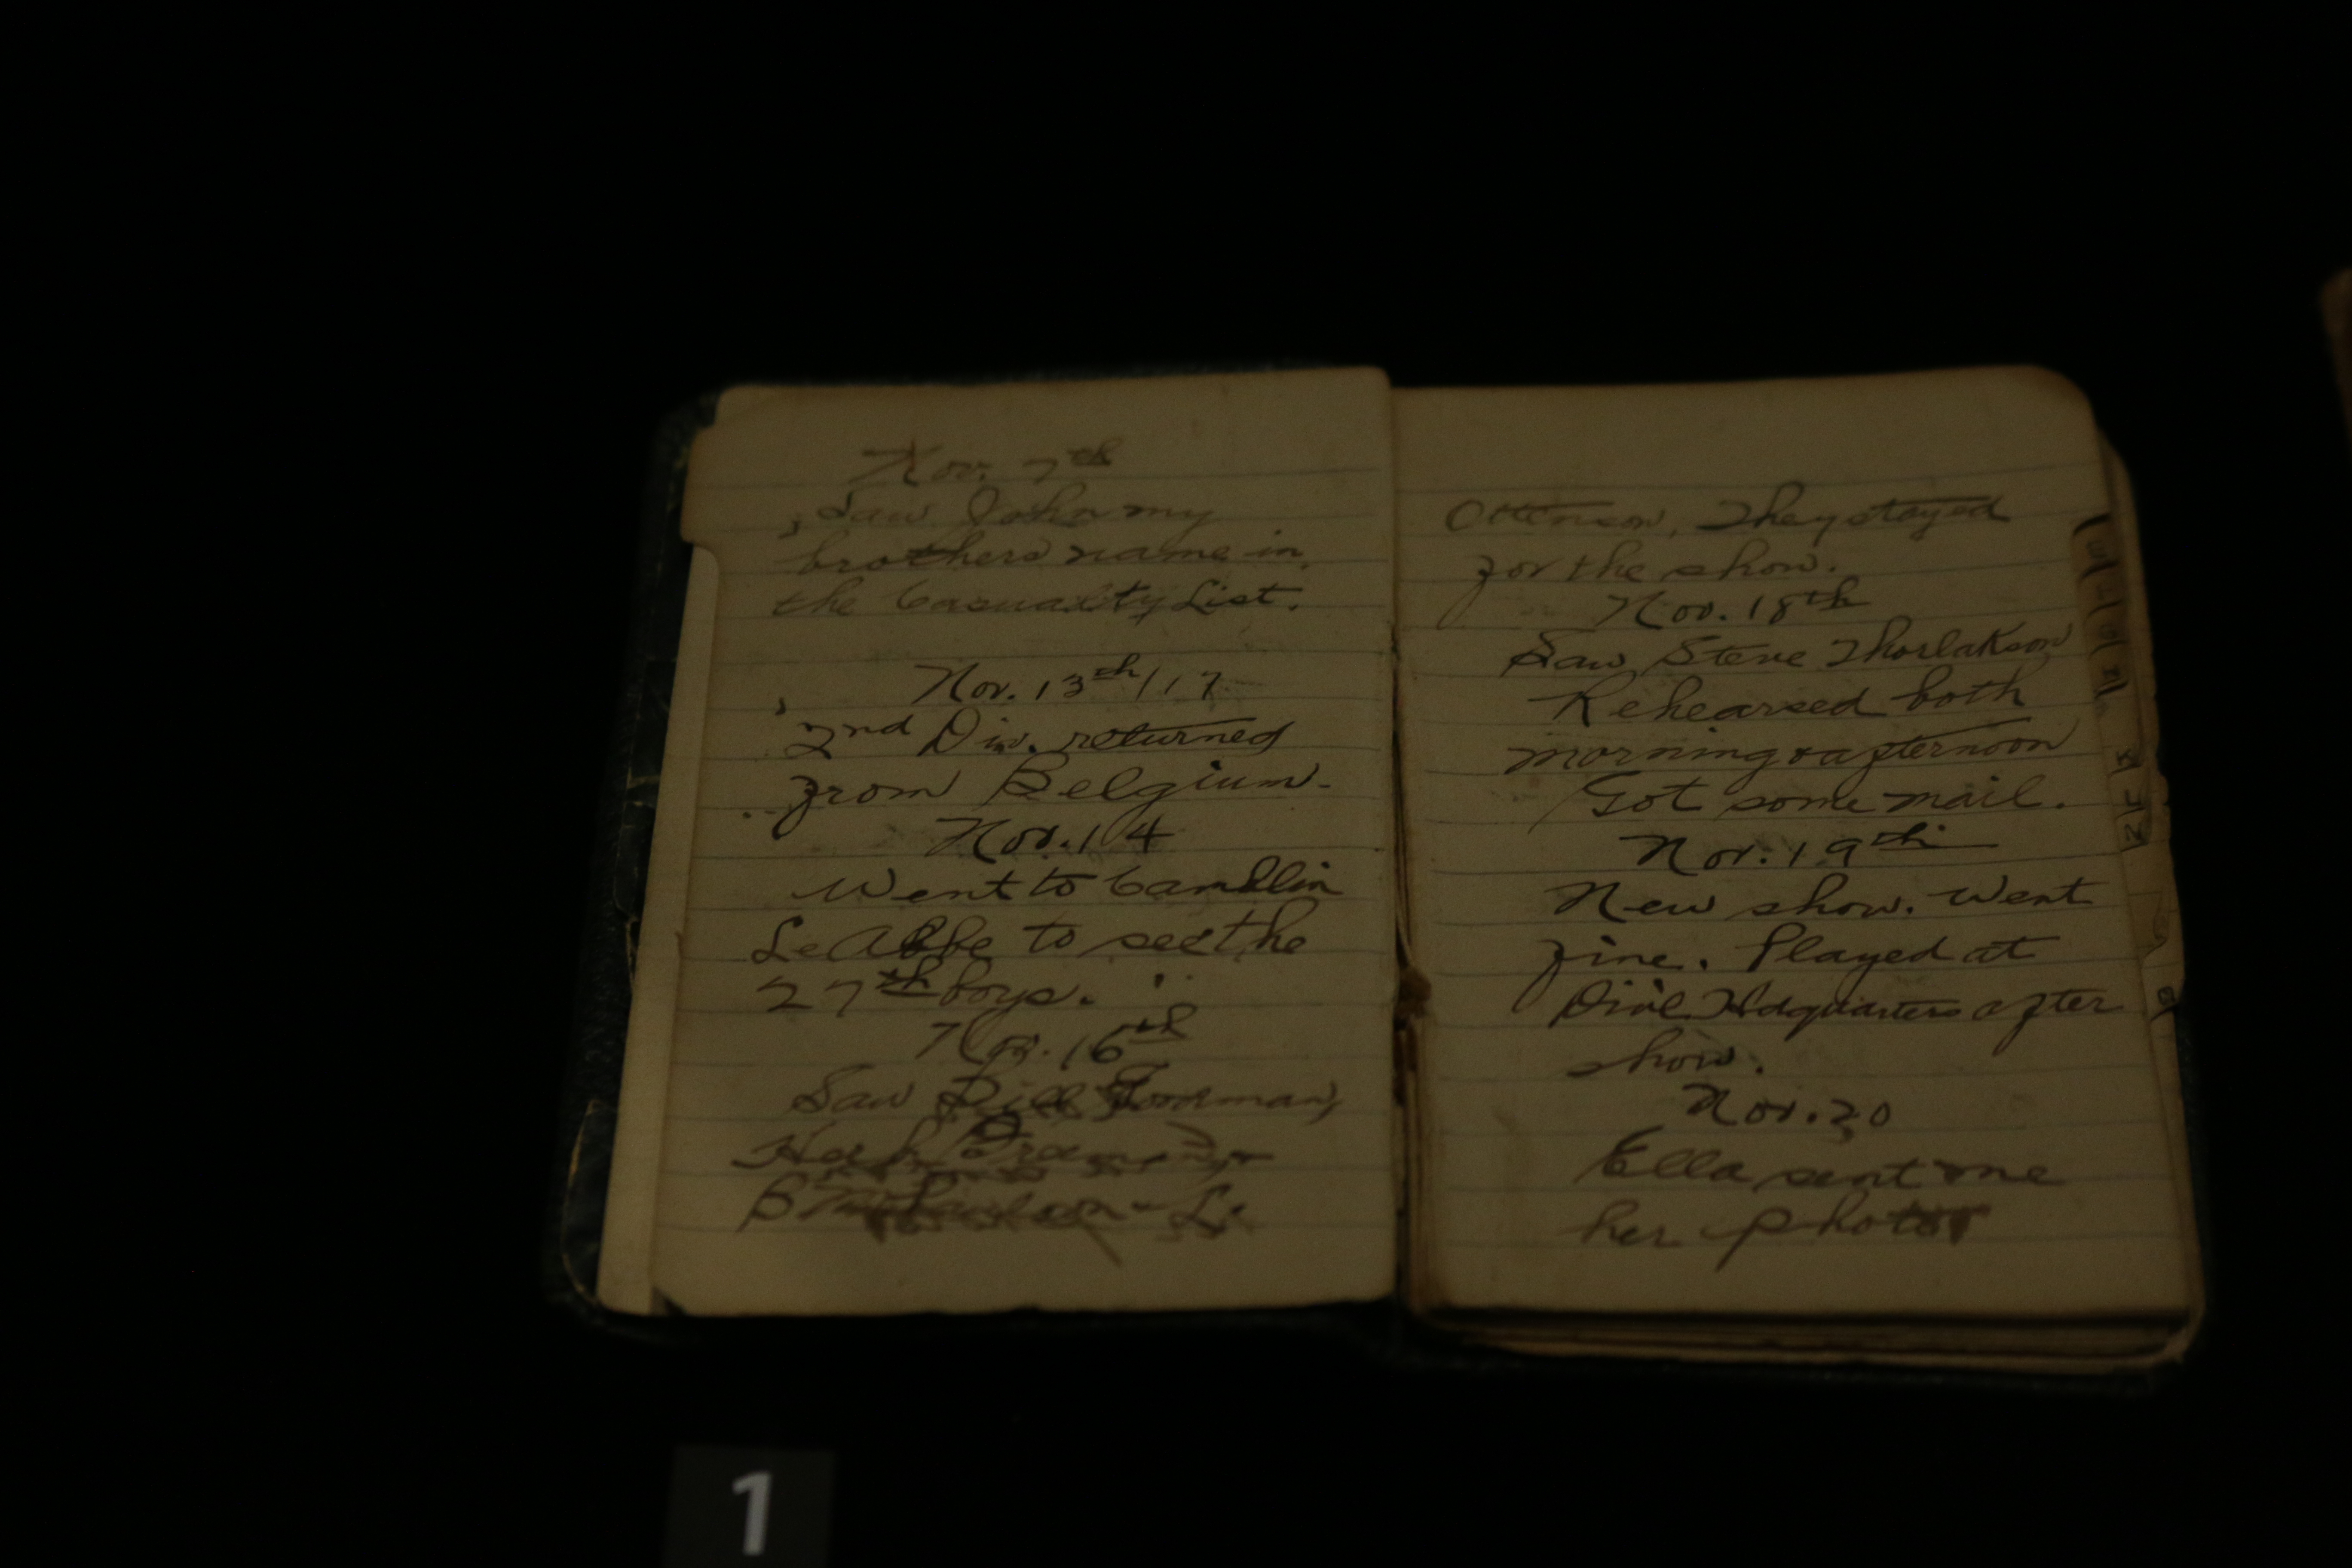 Nov. 7th
Saw John my
brothers name in
the Casualty List.
Nov. 13th/17
2nd Div. returned
from Belgium.
Nov. 14
Went to Camblin
Le Abbe to see the
27th boys.
Nov. 16th
Saw Bill Goodman,
Ottenson, They stayed
for the show.
Nov. 18th
Saw Steve Thorlakson
Rehearsed both
morning & afternoon
Got some mail.
Nov. 19th
New show. Went
fine. Played at
Hdquarters after
show.
Nov. 20
Ella sent me
her photo
1